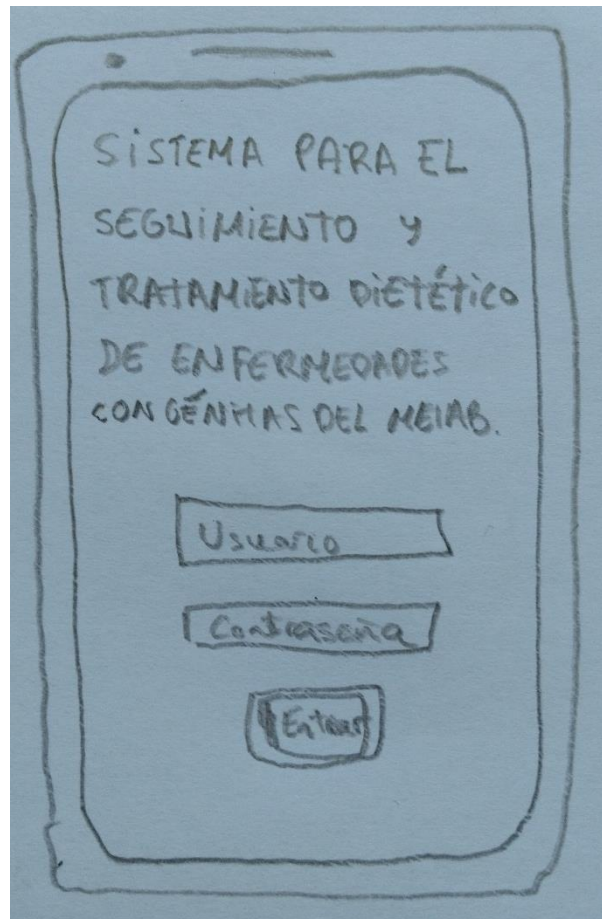 SISTEMA PARA EL
SEGUIMIENTO Y
TRATAMIENTO DIETÉTICO
DE ENFERMEDADES
CONGÉNITAS DEL METAB.
Usuario
Contraseña
Entrar